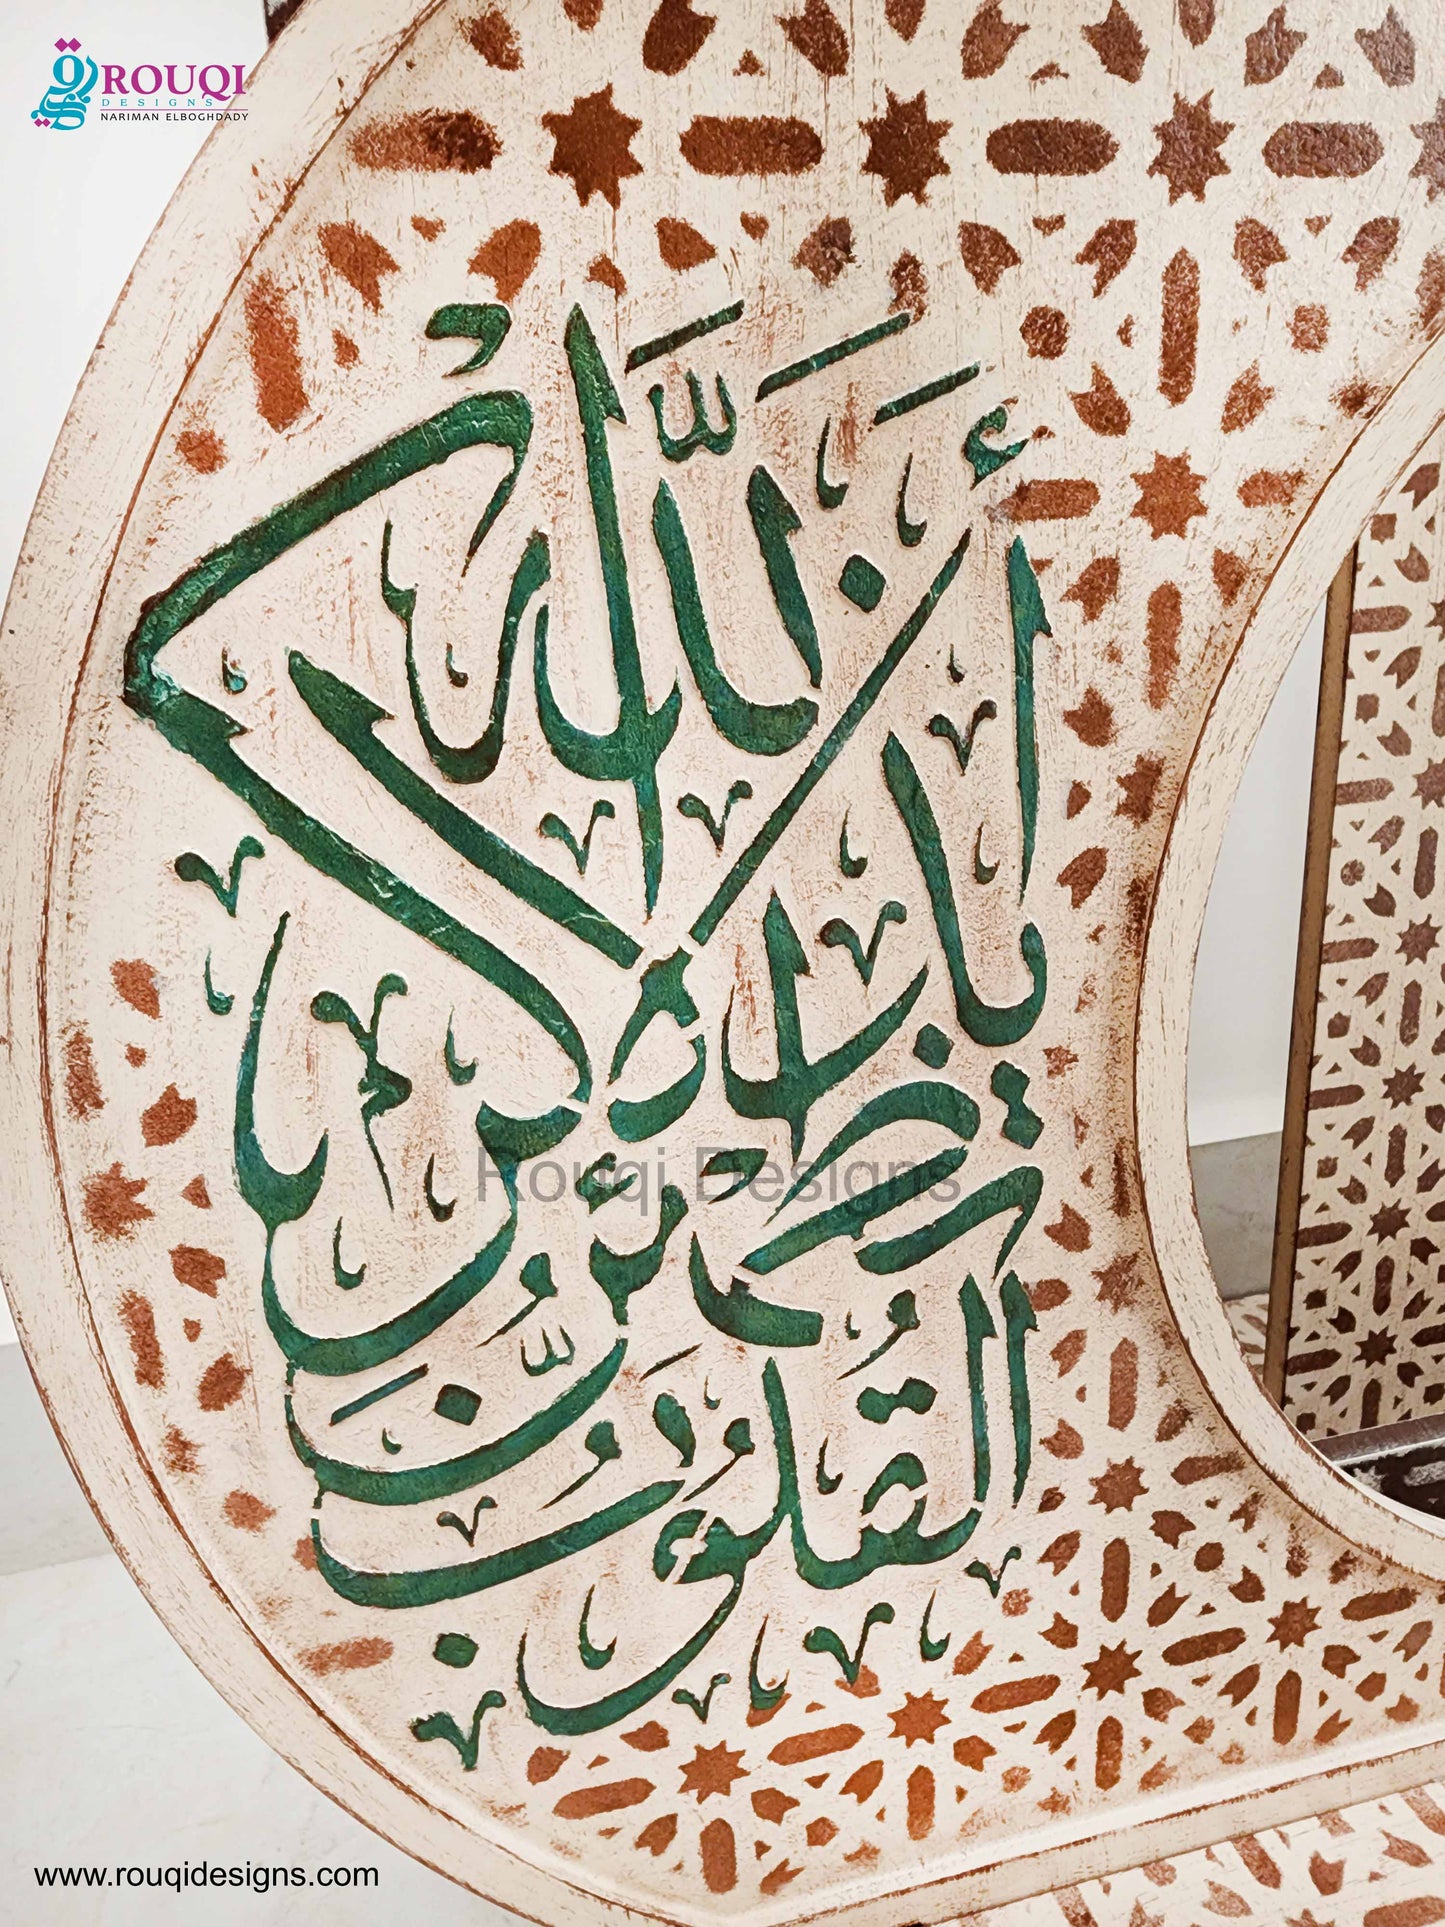 ROUQI
DESIGNS
NARIMAN ELBOGHDADY
ألا بذكر الله
تطمئن
القلوب
Rouqi Designs
www.rouqidesigns.com